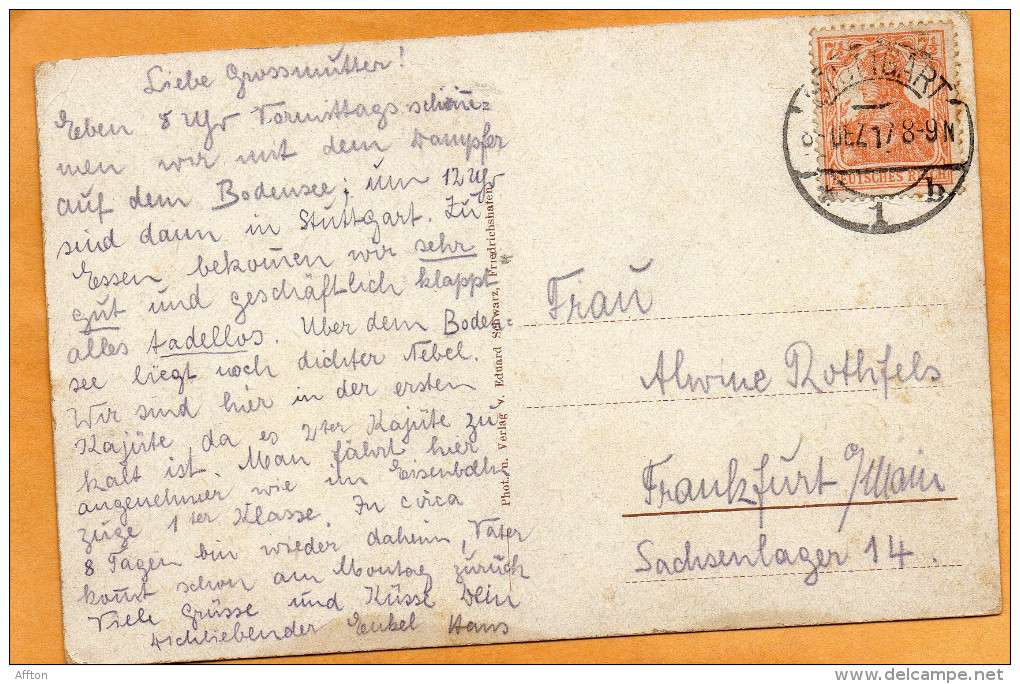 Liebe Grossmutter!
Eben 8 Uhr Vormittags schwim=
men wir mit dem Dampfer
auf dem Bodensee; um 12 Uhr
sind dann in Stuttgart. Zu
Essen bekomen wir sehr
gut und geschäftlich klappt
alles tadellos. Über dem Boden=
see liegt noch dichter Nebel.
Wir sind hier in der ersten
Kajüte da es 2ter Kajüte zu
kalt ist. Man fährt hier
angenehmer wie im Eisenbahn
zuge 1ter Klasse. In circa
8 Tagen bin wieder daheim, Vater
komt schon am Montag zurück
Viele Grüsse und Küsse Dein
Dichliebender Enkel Hans
Phot. u. Verlag v. Eduard Schwarz, Friedrichshafen
7½ 7½
DEUTSCHES REICH
STUTTGART
DEZ 17 8-9N
1 b
Frau
Alwine Rothfels
Frankfurt a/Main
Sachsenlager 14.
Affton
delcampe.net